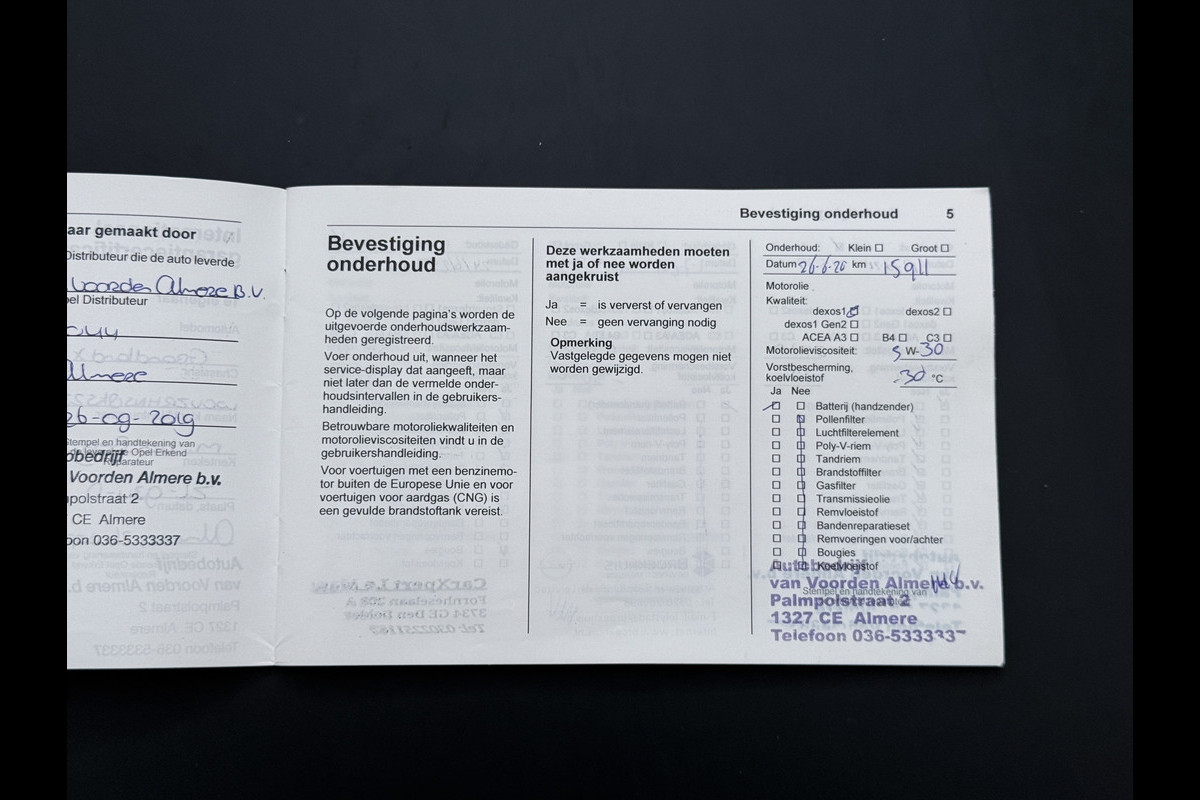 aar gemaakt door
Distributeur die de auto leverde
Voorden Almere B.V.
el Distributeur
Almere
26-09-2019
Stempel en handtekening van
Opel Erkend
Reparateur
obedrijf
Voorden Almere b.v.
polstraat 2
CE Almere
oon 036-5333337
Bevestiging onderhoud 5
Bevestiging
onderhoud
Op de volgende pagina's worden de
uitgevoerde onderhoudswerkzaam-
heden geregistreerd.
Voer onderhoud uit, wanneer het
service-display dat aangeeft, maar
niet later dan de vermelde onder-
houdsintervallen in de gebruikers-
handleiding.
Betrouwbare motoroliekwaliteiten en
motorolieviscositeiten vindt u in de
gebruikershandleiding.
Voor voertuigen met een benzinemo-
tor buiten de Europese Unie en voor
voertuigen voor aardgas (CNG) is
een gevulde brandstoftank vereist.
Deze werkzaamheden moeten
met ja of nee worden
aangekruist
Ja = is ververst of vervangen
Nee = geen vervanging nodig
Opmerking
Vastgelegde gegevens mogen niet
worden gewijzigd.
Onderhoud: Klein Groot
Datum 26-6-20 km 15911
Motorolie
Kwaliteit:
dexos1 dexos2
dexos1 Gen2
ACEA A3 B4 C3
Motorolieviscositeit: 5 W-30
Vorstbescherming,
koelvloeistof -30 °C
Ja Nee
Batterij (handzender)
Pollenfilter
Luchtfilterelement
Poly-V-riem
Tandriem
Brandstoffilter
Gasfilter
Transmissieolie
Remvloeistof
Bandenreparatieset
Remvoeringen voor/achter
Bougies
Koelvloeistof
Autobedrijf
van Voorden Almere b.v.
Stempel en handtekening van
Palmpolstraat 2
1327 CE Almere
Telefoon 036-533333